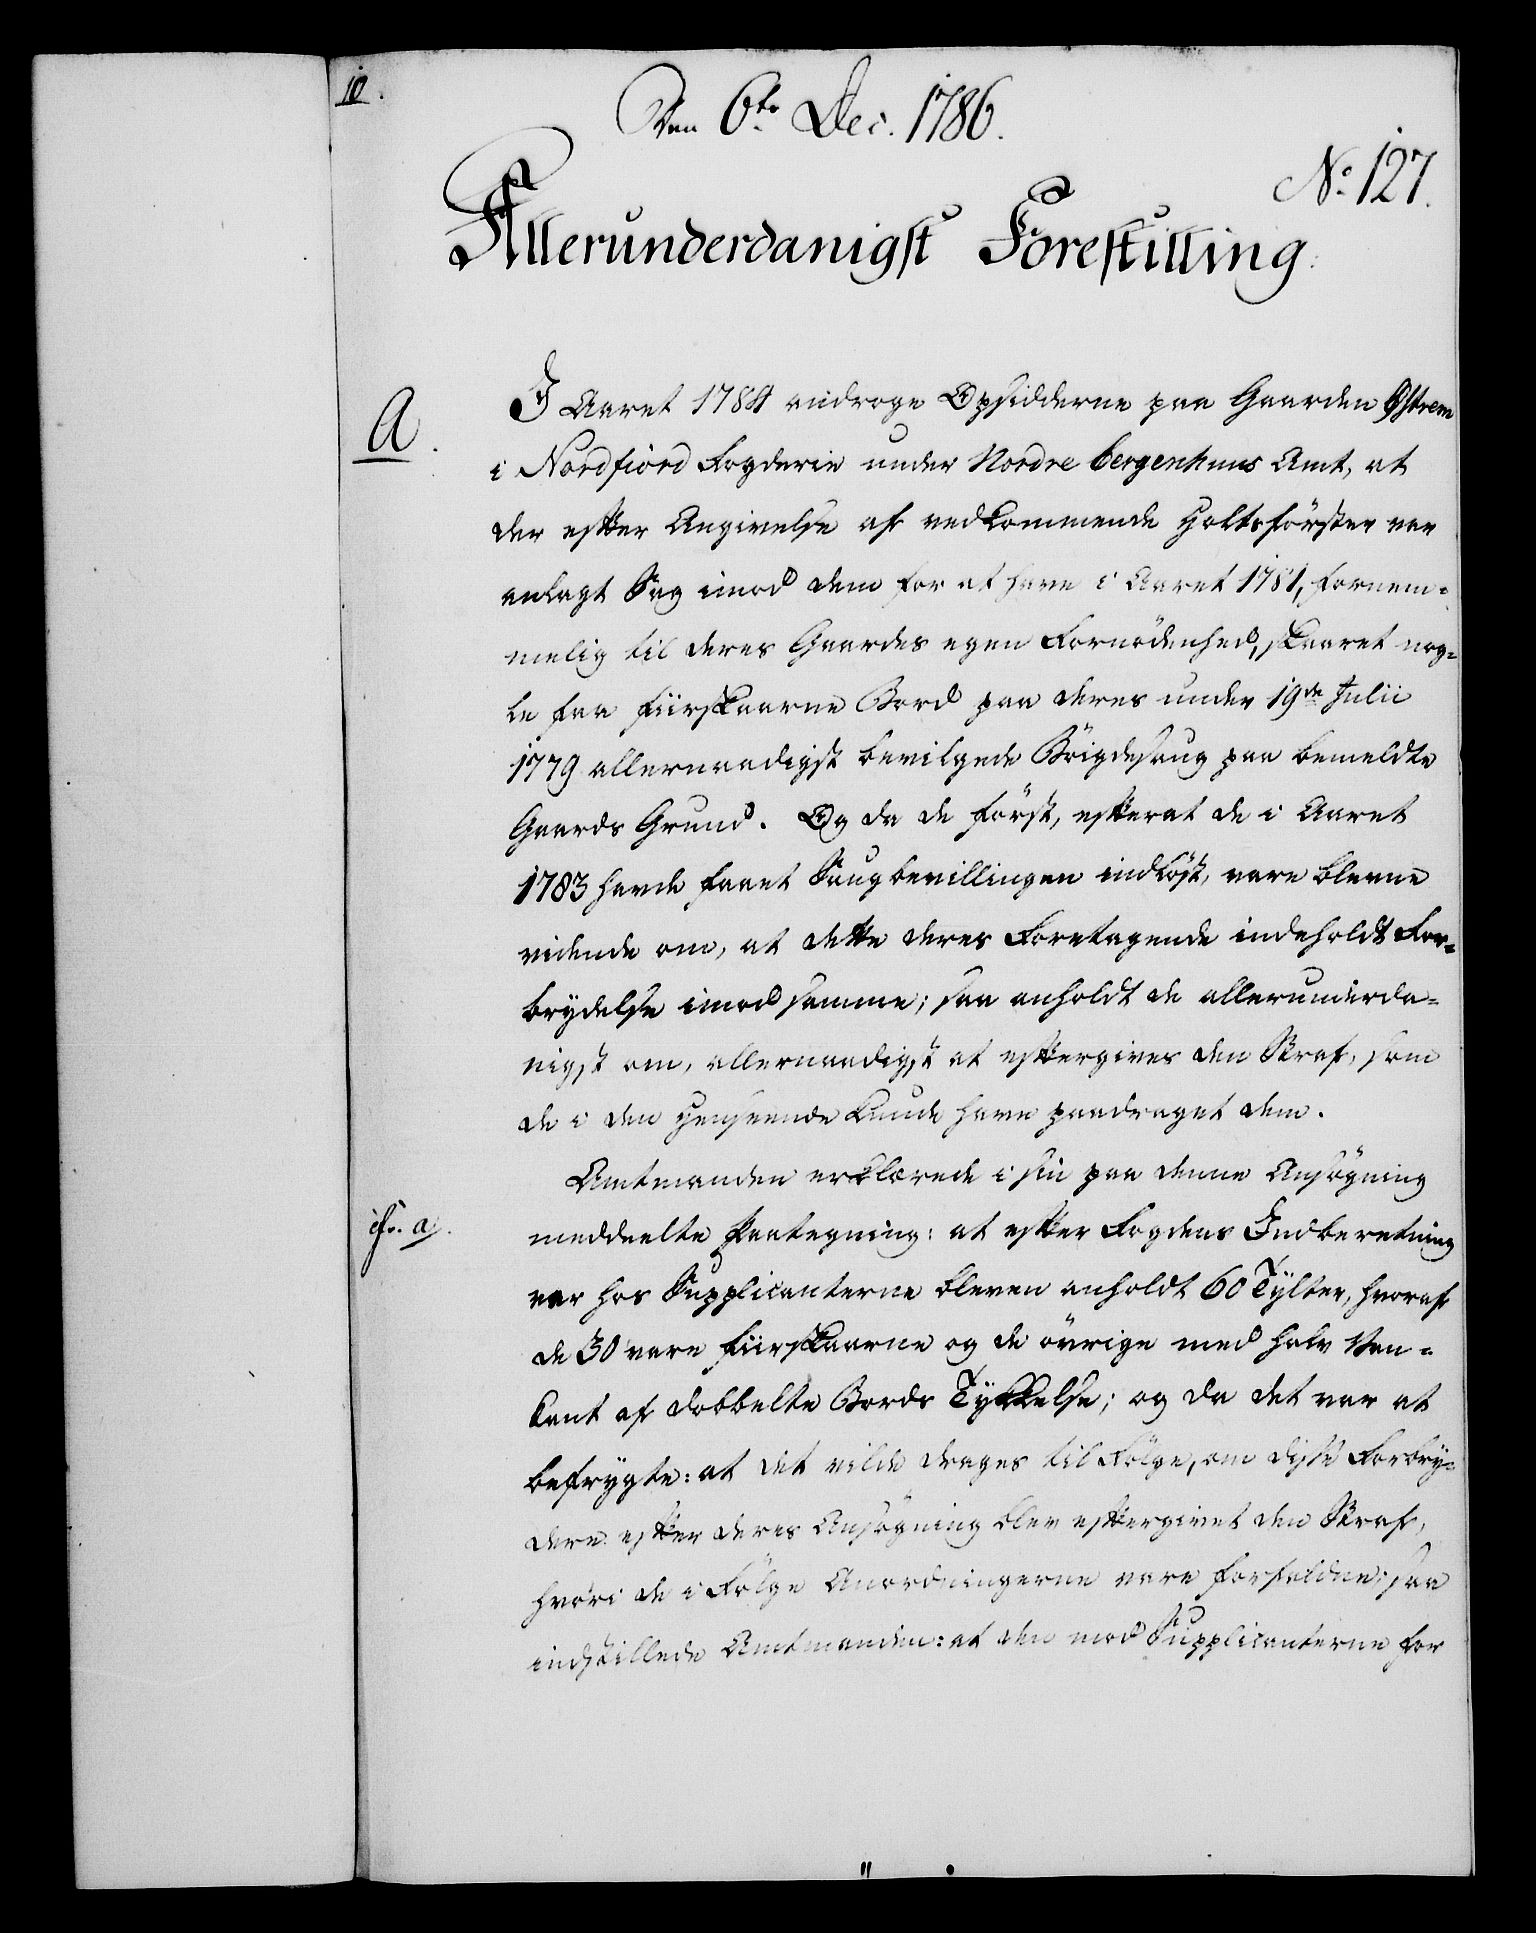 10.
Den 6te Dec. 1786.
No. 127.
Allerunderdanigst Forestilling.
A.
I Aaret 1784 androge Opsidderne paa Gaarden Østrem
i Nordfiord Fogderie under Nordre bergenhuus Amt, at
der efter Angivelse af vedkommende Holtsförster var
anlagt Sag imod dem for at have i Aaret 1781, fornem-
melig til deres Gaardes egen Fornödenhed, skaaret nog-
le faa fiirskaarne Bord paa deres under 19de Julii
1779 allernaadigst bevilgede Böigdesaug paa bemeldte
Gaards Grund. Og da de först, efterat de i Aaret
1783 havde faaet Saugbevillingen indlöst, vare blevne
vidende om, at dette deres Foretagende indeholdt For-
brydelse imod samme; saa anholdt de allerunderda-
nigst om, allernaadigst at eftergives den Straf, som
de i den Henseende kunde have paadraget dem.
Amtmanden erklærede i sin paa denne Ansögning
cfr. a).
meddeelte Paategning: at efter Fogdens Indberetning
var hos Supplicanterne bleven anholdt 60 Tylter, hvoraf
de 30 vare fiirskaarne og de övrige med halv Van-
kant af dobbelte Bords Tykkelse; og da det var at
befrygte: at det vilde drages til Fölge, om disse Forbry-
dere efter deres Ansögning blev eftergivet den Straf,
hvori de i Fölge Anordningerne vare forfaldne; saa
indstillede Amtmanden: at den mod Supplicanterne for